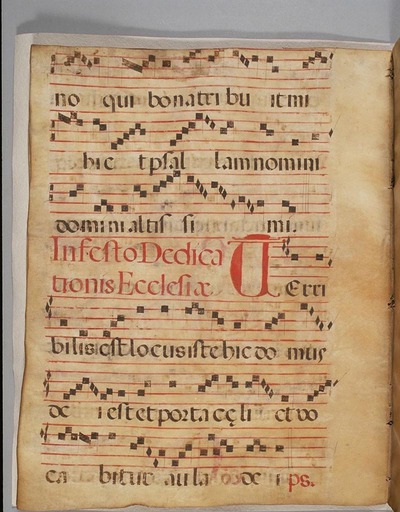 no qui bona tri bu it mi
hi c t psal lam nomini
domini altis si mi.
In festo Dedica
tionis Ecclesiæ T Erri
bilis est locus iste hic do mus
de i est et porta cęli et vo
ca bitur au la de i ps.